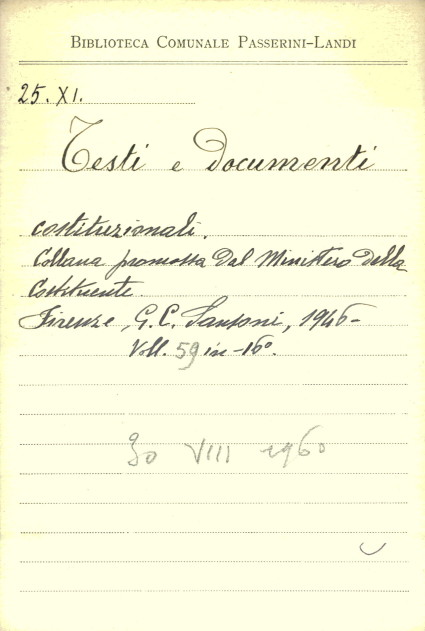 BIBLIOTECA COMUNALE PASSERINI-LANDI
25. XI.
Testi e Documenti
costituzionali.
Collana promossa dal Ministero della
Costituente.
Firenze, G. C. Sansoni, 1946-
Voll. 59 in-16º.
30 VIII 1960